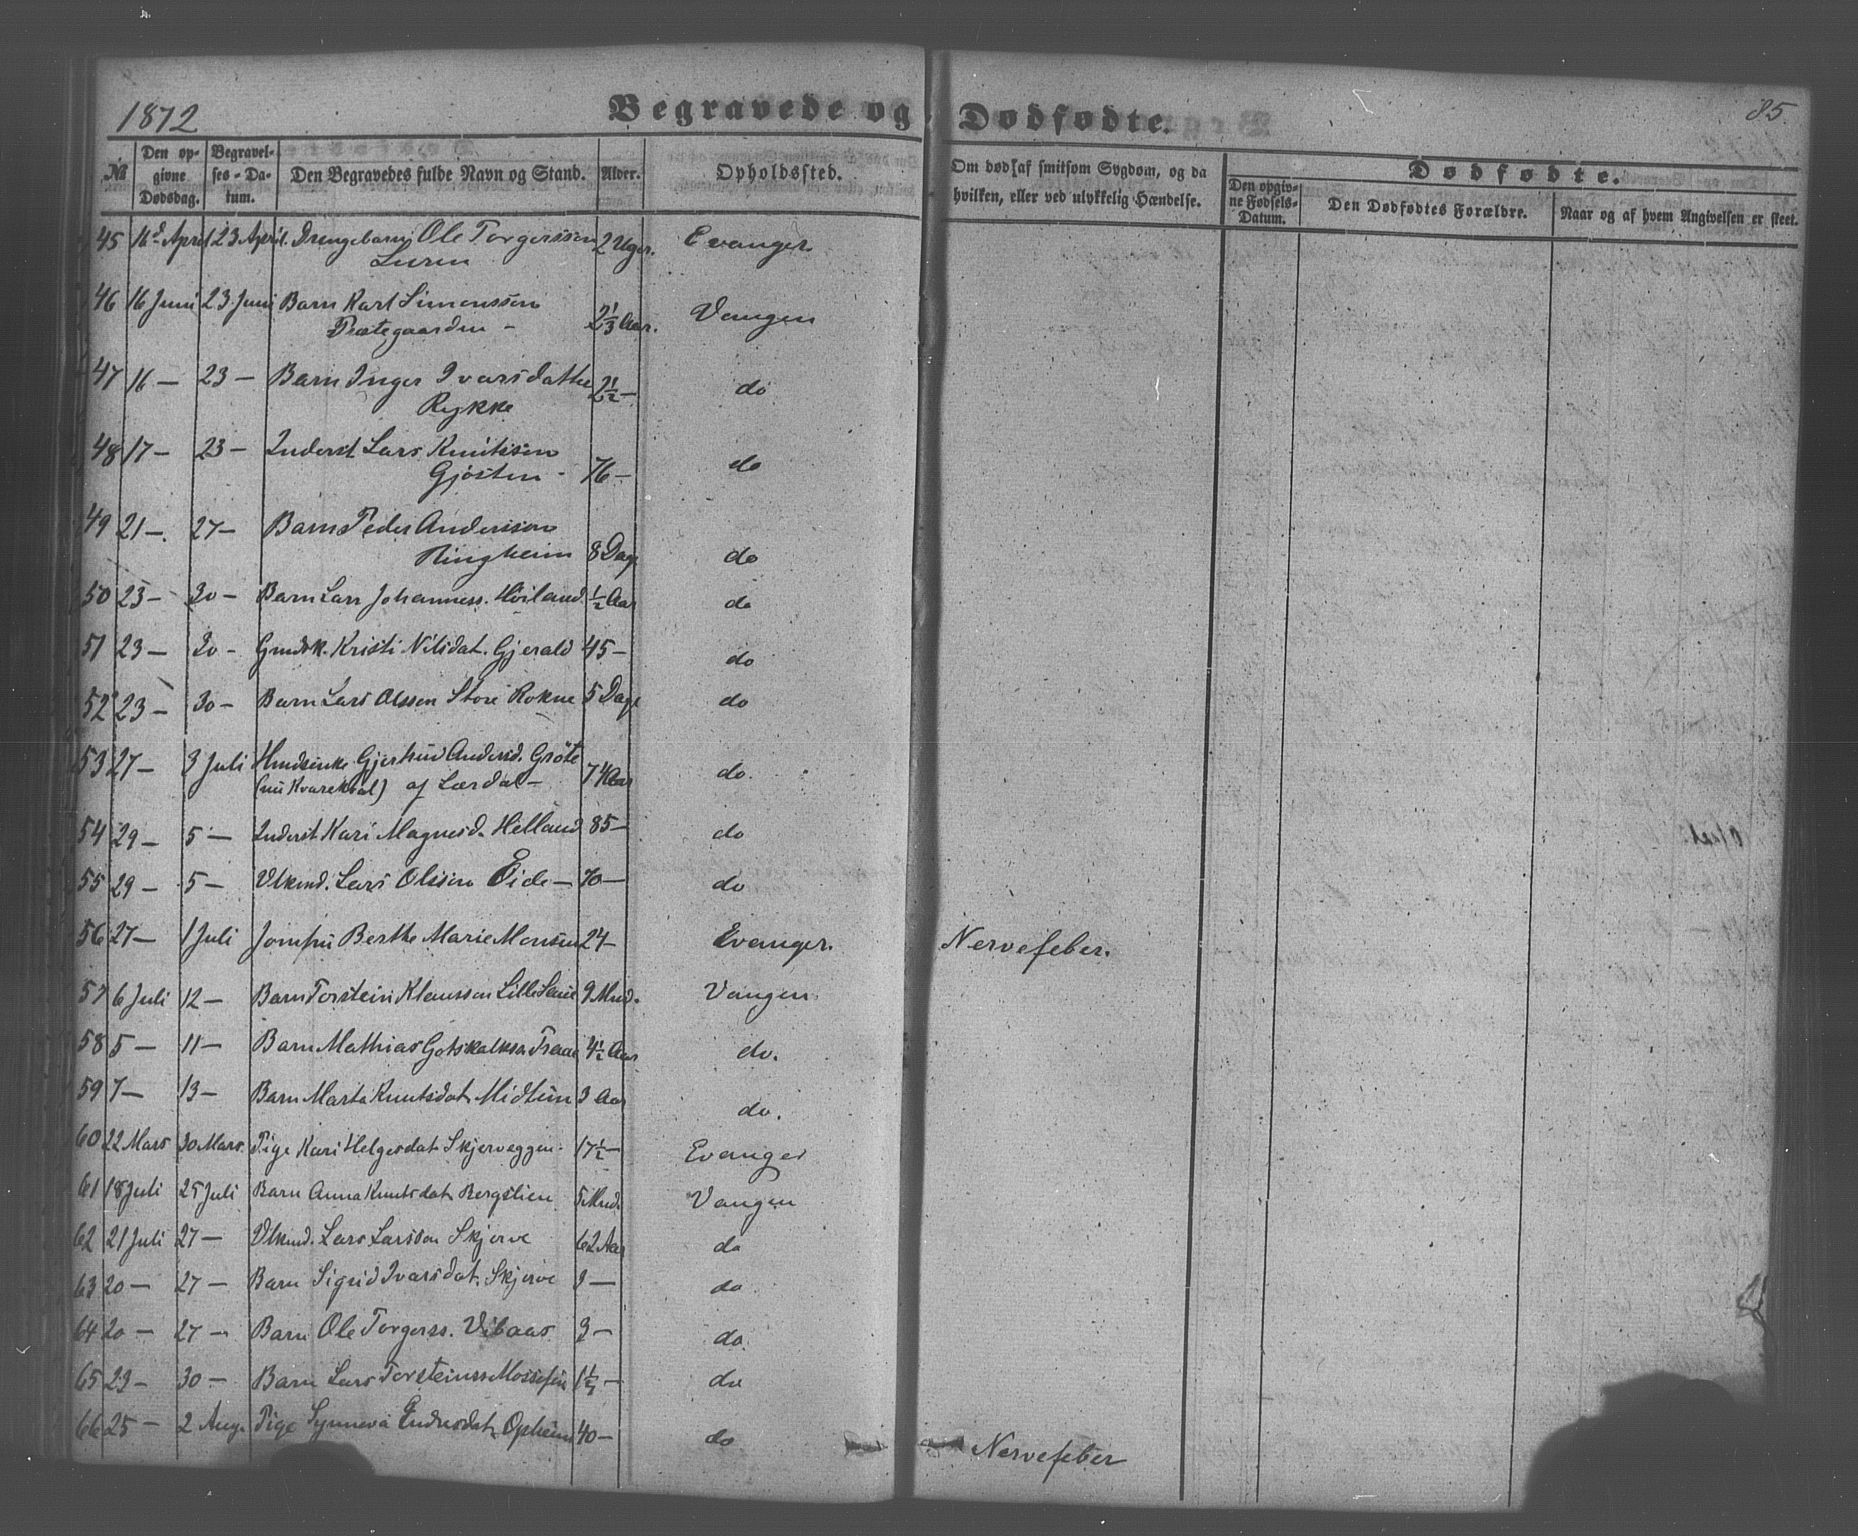 1872
Begravede og Dødfødte.
85.
№
Den opgivne Dødsdag.
Begravelses-Datum.
Den Begravedes fulde Navn og Stand.
Alder.
Opholdssted.
Om død af smitsom Sygdom, og da hvilken, eller ved ulykkelig Hændelse.
Dødfødte.
Den opgivne Fødsels-Datum.
Den Dødfødtes Forældre.
Naar og af hvem Angivelsen er skeet.
45 16d April 23 April. Drengebarn Ole Torgerssen 2 Uger. Evanger
46 16 Juni 23 Juni Barn Karl Simonssen
Præstegaarden - 2 1/3 Aar. Vangen
47 16 — 23 — Barn Inger Ivarsdatter
Rykke 2 1/2 — do
48 17 — 23 — Inderst Lars Knutssen
Gjøsten - 76 — do
49 21 —. 27 — Barn Peder Anderssen
Ringheim 8 Dage do
50 23 — 30 — Barn Lars Johanness. Høiland 1/2 Aar do
51 23 — 30 - Grmdk. Kristi Nilsdat. Gjerald 45 — do
52 23 — 30 — Barn Lars Olssen Store Rokne 5 Dage do
53 27 — 3 Juli Gjertrud Andersd. Grøte
(nu Kvarekval) af Lærdal — 74 Aar do.
54 29 — 5 — Inderst Kari Magnesd. Helland 85 — do
55 29 — 5 — Vlkmd. Lars Olssen Eide — 70 — do
56 27 — 1 Juli Jomfru Berthe Marie Monsen 24 — Evanger. Nervefeber.
57 6 Juli 12 — Barn Torstein Klaussen Lille 9 Mnd. Vangen
58 5 — 11 — Barn Mathias Gotskalkss. 4 1/2 Aar do.
59 7 — 13 — Barn Marta Knutsdat. Midtun 3 Aar do.
60 22 Mars 30 Mars. Pige Kari Helgesdat. Skjerveggen. 17 1/2 — Evanger
61 18 Juli 25 Juli Barn Anna Knutsdat. Bergslien 5 Mnd. Vangen
62 21 Juli 27 — Vlkmd. Lars Larssen Skjerve 62 Aar do
63 20 — 27 — Barn Sigrid Ivarsdat. Skjerve 3 — do
64 20 — 27 — Barn Ole Torgerss. Vibaas 3 — do.
65 23 — 30 — Barn Lars Torsteinss. Mossefin — do
66 25 — 2 Aug. Pige Synneva Endresdat. Opheim 40 — do Nervefeber